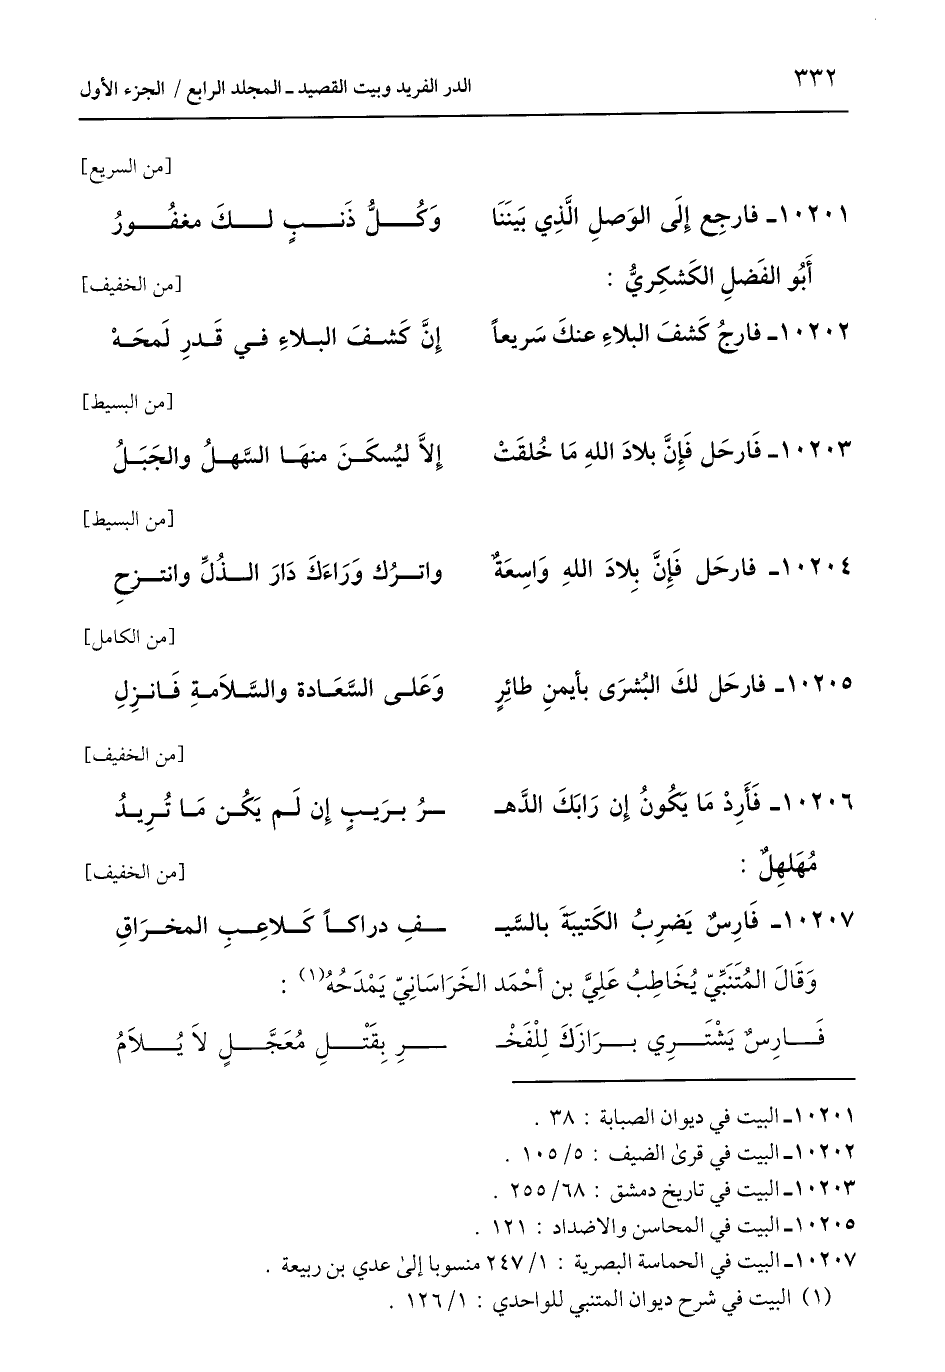 ٣٣٢ الدر الفريد وبيت القصيد ـ المجلد الرابع / الجزء الأول
[من السريع]
١٠٢٠١ـ فارجع إِلَى الوَصلِ الَّذِي بَينَنَا وَكُلُّ ذَنبٍ لكَ مغفُورُ
أَبُو الفَضلِ الكَشكِريُّ : [من الخفيف]
١٠٢٠٢ـ فارجُ كَشفَ البلاءِ عنكَ سَريعاً إنَّ كَشفَ البلاءِ في قَدرِ لَمحَهْ
[من البسيط]
١٠٢٠٣ـ فَارحَل فَإِنَّ بلادَ اللهِ مَا خُلقَتْ إلاَّ ليُسكَنَ منهَا السَّهلُ والجَبَلُ
[من البسيط]
١٠٢٠٤ـ فارحَل فَإِنَّ بِلادَ اللهِ وَاسِعَةٌ واترُك وَرَاءَكَ دَارَ الذُلِّ وانتزحِ
[من الكامل]
١٠٢٠٥ـ فارحَل لكَ البُشرَى بأيمنِ طائِرٍ وَعَلى السَّعَادة والسَّلاَمةِ فَانزِلِ
[من الخفيف]
١٠٢٠٦ـ فَأَرِدْ مَا يَكُونُ إن رَابَكَ الدَّهـ ـرُ برَيبٍ إن لَم يَكُن مَا تُرِيدُ
مُهَلهِلٌ : [من الخفيف]
١٠٢٠٧ـ فَارِسٌ يَضرِبُ الكَتيبَةَ بالسَّيـ ـفِ دراكاً كَلاعِبِ المخرَاقِ
وَقَالَ المُتَنَبِّيّ يُخَاطِبُ عَلِيَّ بن أحْمَد الخَرَاسَانِيّ يَمْدَحُهُ(١) :
فَارِسٌ يَشْتَرِي بِرَازَكَ لِلْفَخْـ ـرِ بِقَتْلِ مُعَجَّلٍ لاَ يُلاَمُ
١٠٢٠١ـ البيت في ديوان الصبابة : ٣٨ .
١٠٢٠٢ـ البيت في قرىٰ الضيف : ٥/ ١٠٥ .
١٠٢٠٣ـ البيت في تاريخ دمشق : ٦٨/ ٢٥٥ .
١٠٢٠٥ـ البيت في المحاسن والاضداد : ١٢١ .
١٠٢٠٧ـ البيت في الحماسة البصرية : ١/ ٢٤٧ منسوبا إلىٰ عدي بن ربيعة .
(١) البيت في شرح ديوان المتنبي للواحدي : ١/ ١٢٦ .